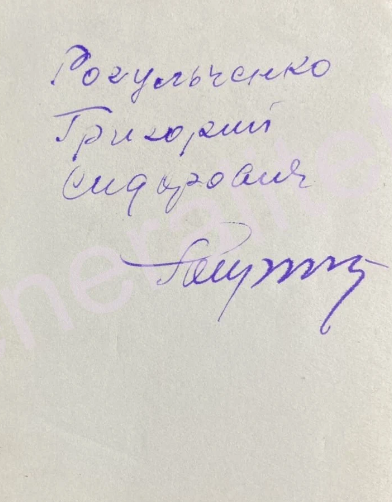 Рогульченко
Григорий
Сидорович